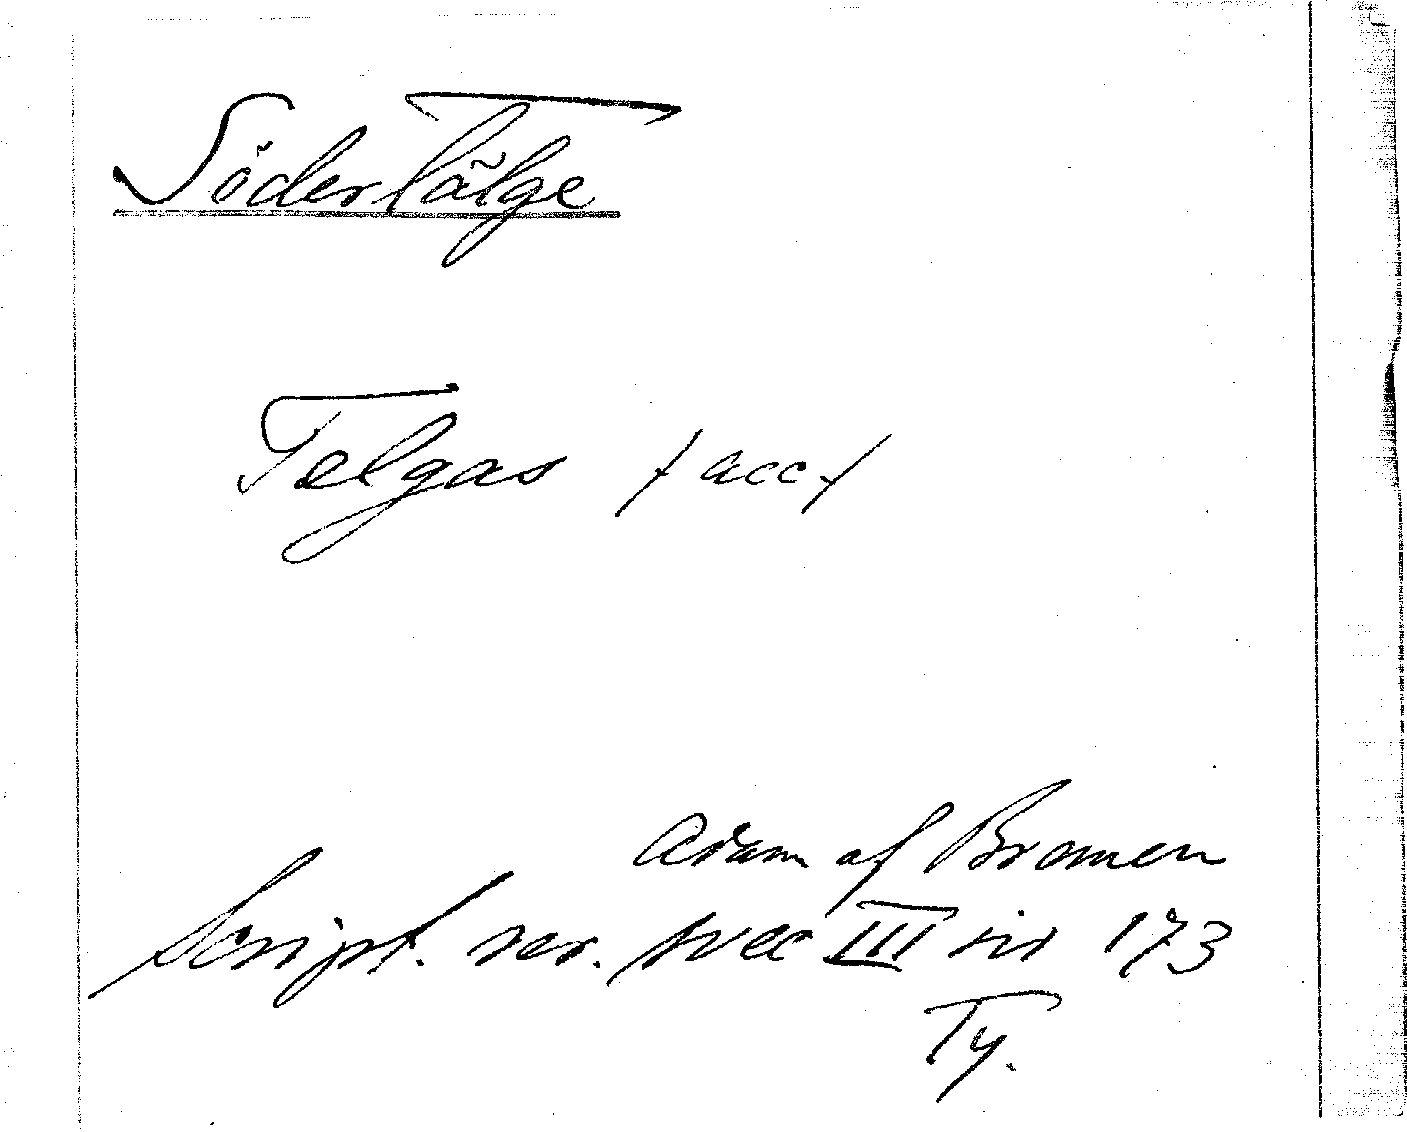 Södertälge
Telgas /acc./
Adam af Bremen
Script. rer. svec III sid 173
Ty.